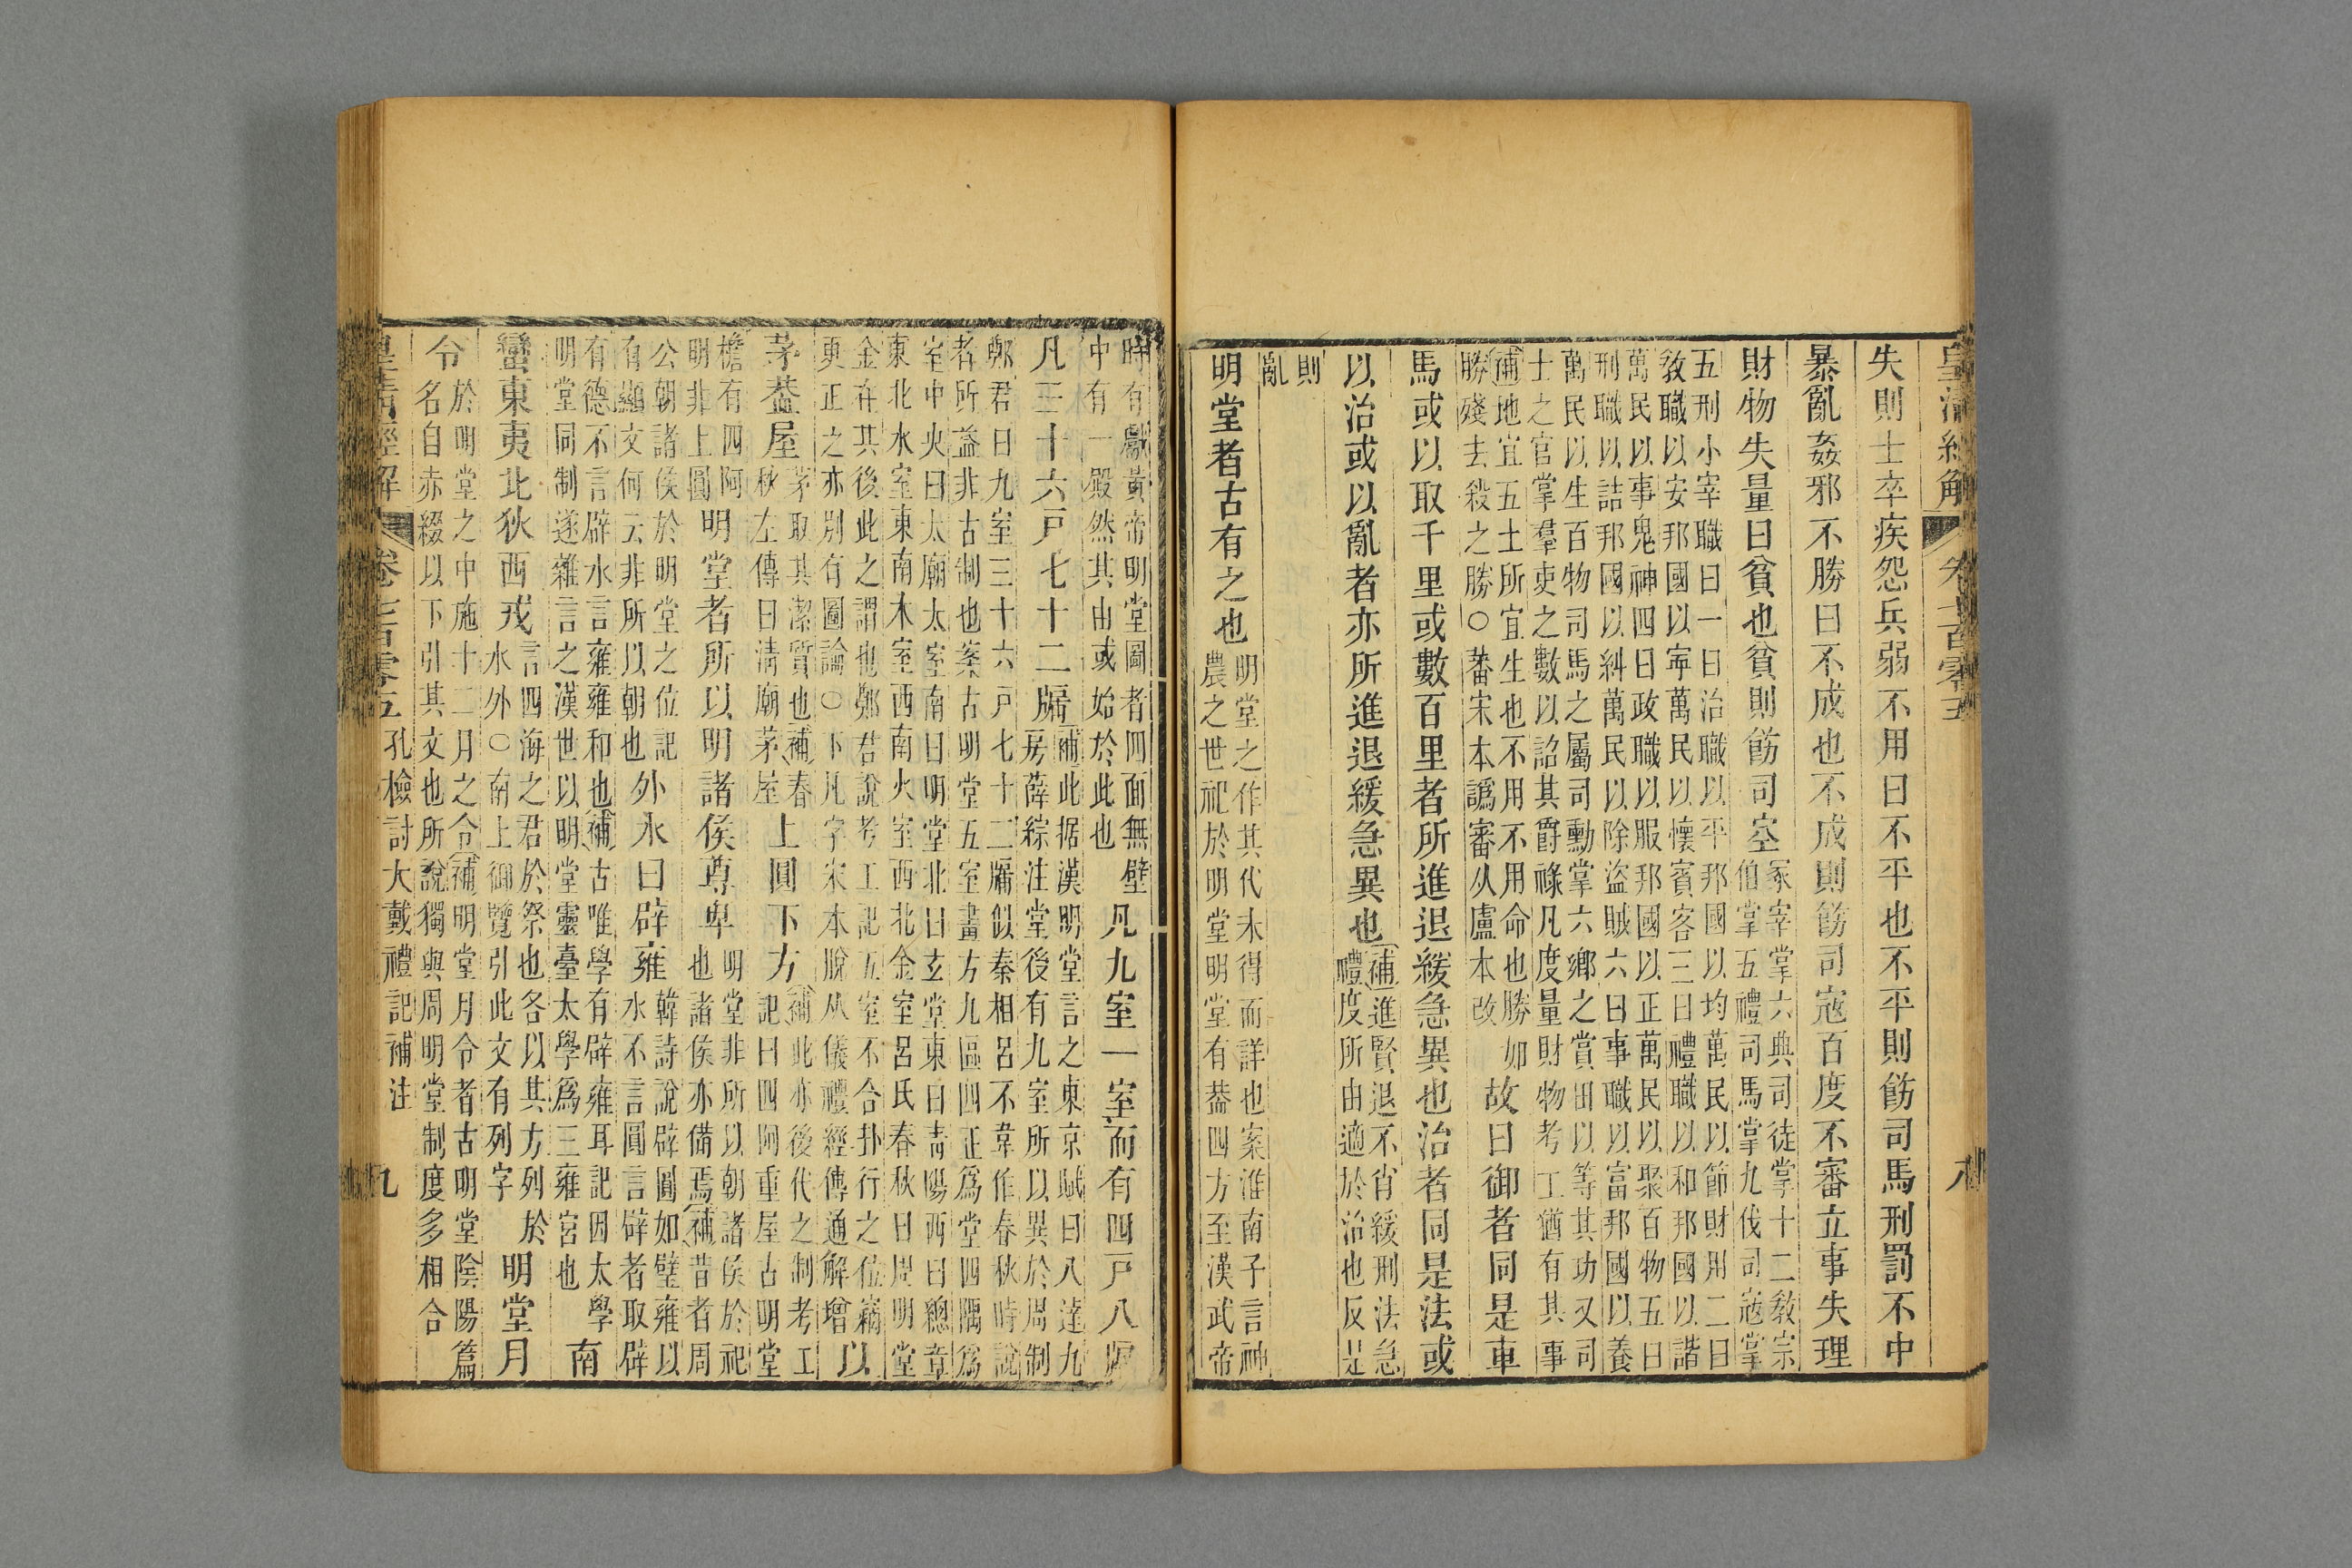 皇清經解 卷七百零五 八
失則士卒疾怨兵弱不用曰不平也不平則飭司馬刑罰不中
暴亂姦邪不勝曰不成也不成則飭司寇百度不審立事失理
財物失量曰貧也貧則飭司空冢宰掌六典司徒掌十二教宗
伯掌五禮司馬掌九伐司寇掌
五刑小宰職曰一曰治職以平邦國以均萬民以節財用二曰
教職以安邦國以寧萬民以懷賓客三曰禮職以和邦國以諧
萬民以事鬼神四曰政職以服邦國以正萬民以聚百物五曰
刑職以詰邦國以糾萬民以除盜賊六曰事職以富邦國以養
萬民以生百物司馬之屬司勳掌六鄉之賞田以等其功又司
士之官掌羣吏之數以詔其爵祿凡度量財物考工猶有其事
補地宜五土所宜生也不用不用命也勝如
勝殘去殺之勝〇蕃宋本譌審从盧本改
故曰御者同是車
馬或以取千里或數百里者所進退緩急異也治者同是法或
以治或以亂者亦所進退緩急異也補進賢退不肖緩刑法急
禮度所由適於治也反是
則
亂
明堂者古有之也明堂之作其代未得而詳也案淮南子言神
農之世祀於明堂明堂有蓋四方至漢武帝
時有獻黃帝明堂圖者四面無壁
中有一殿然其由或始於此也
凡九室一室而有四戶八牖
凡三十六戶七十二牖補此据漢明堂言之東京賦曰八達九
房薛綜注堂後有九室所以異於周制
鄭君曰九室三十六戶七十二牖似秦相呂不韋作春秋時說
者所益非古制也案古明堂五室畫方九區四正爲堂四隅爲
室中央曰太廟太室南曰明堂北曰玄堂東曰青陽西曰總章
東北水室東南木室西南火室西北金室呂氏春秋曰周明堂
金在其後此之謂也鄭君說考工記五室不合卦行之位竊
更正之亦別有圖論〇下凡字宋本脫从儀禮經傳通解增
以
茅蓋屋茅取其潔質也補春
秋左傳曰淸廟茅屋
上圓下方補此亦後代之制考工
記曰四阿重屋古明堂
檐有四阿
明非上圓
明堂者所以明諸侯尊卑明堂非所以朝諸侯於祀
也諸侯亦備焉補昔者周
公朝諸侯於明堂之位記
有顯文何云非所以朝也
外水曰辟雍韓詩說辟圓如璧雍以
水不言圓言辟者取辟
有德不言辟水言雍雍和也補古唯學有辟雍耳記因太學
明堂同制遂雜言之漢世以明堂靈臺太學爲三雍宮也
南
蠻東夷北狄西戎言四海之君於祭也各以其方列於
水外〇南上御覽引此文有列字
明堂月
令於明堂之中施十二月之令補明堂月令者古明堂陰陽篇
名自赤綴以下引其文也所說獨與周明堂制度多相合
皇清經解 卷七百零五 孔檢討大戴禮記補注 九